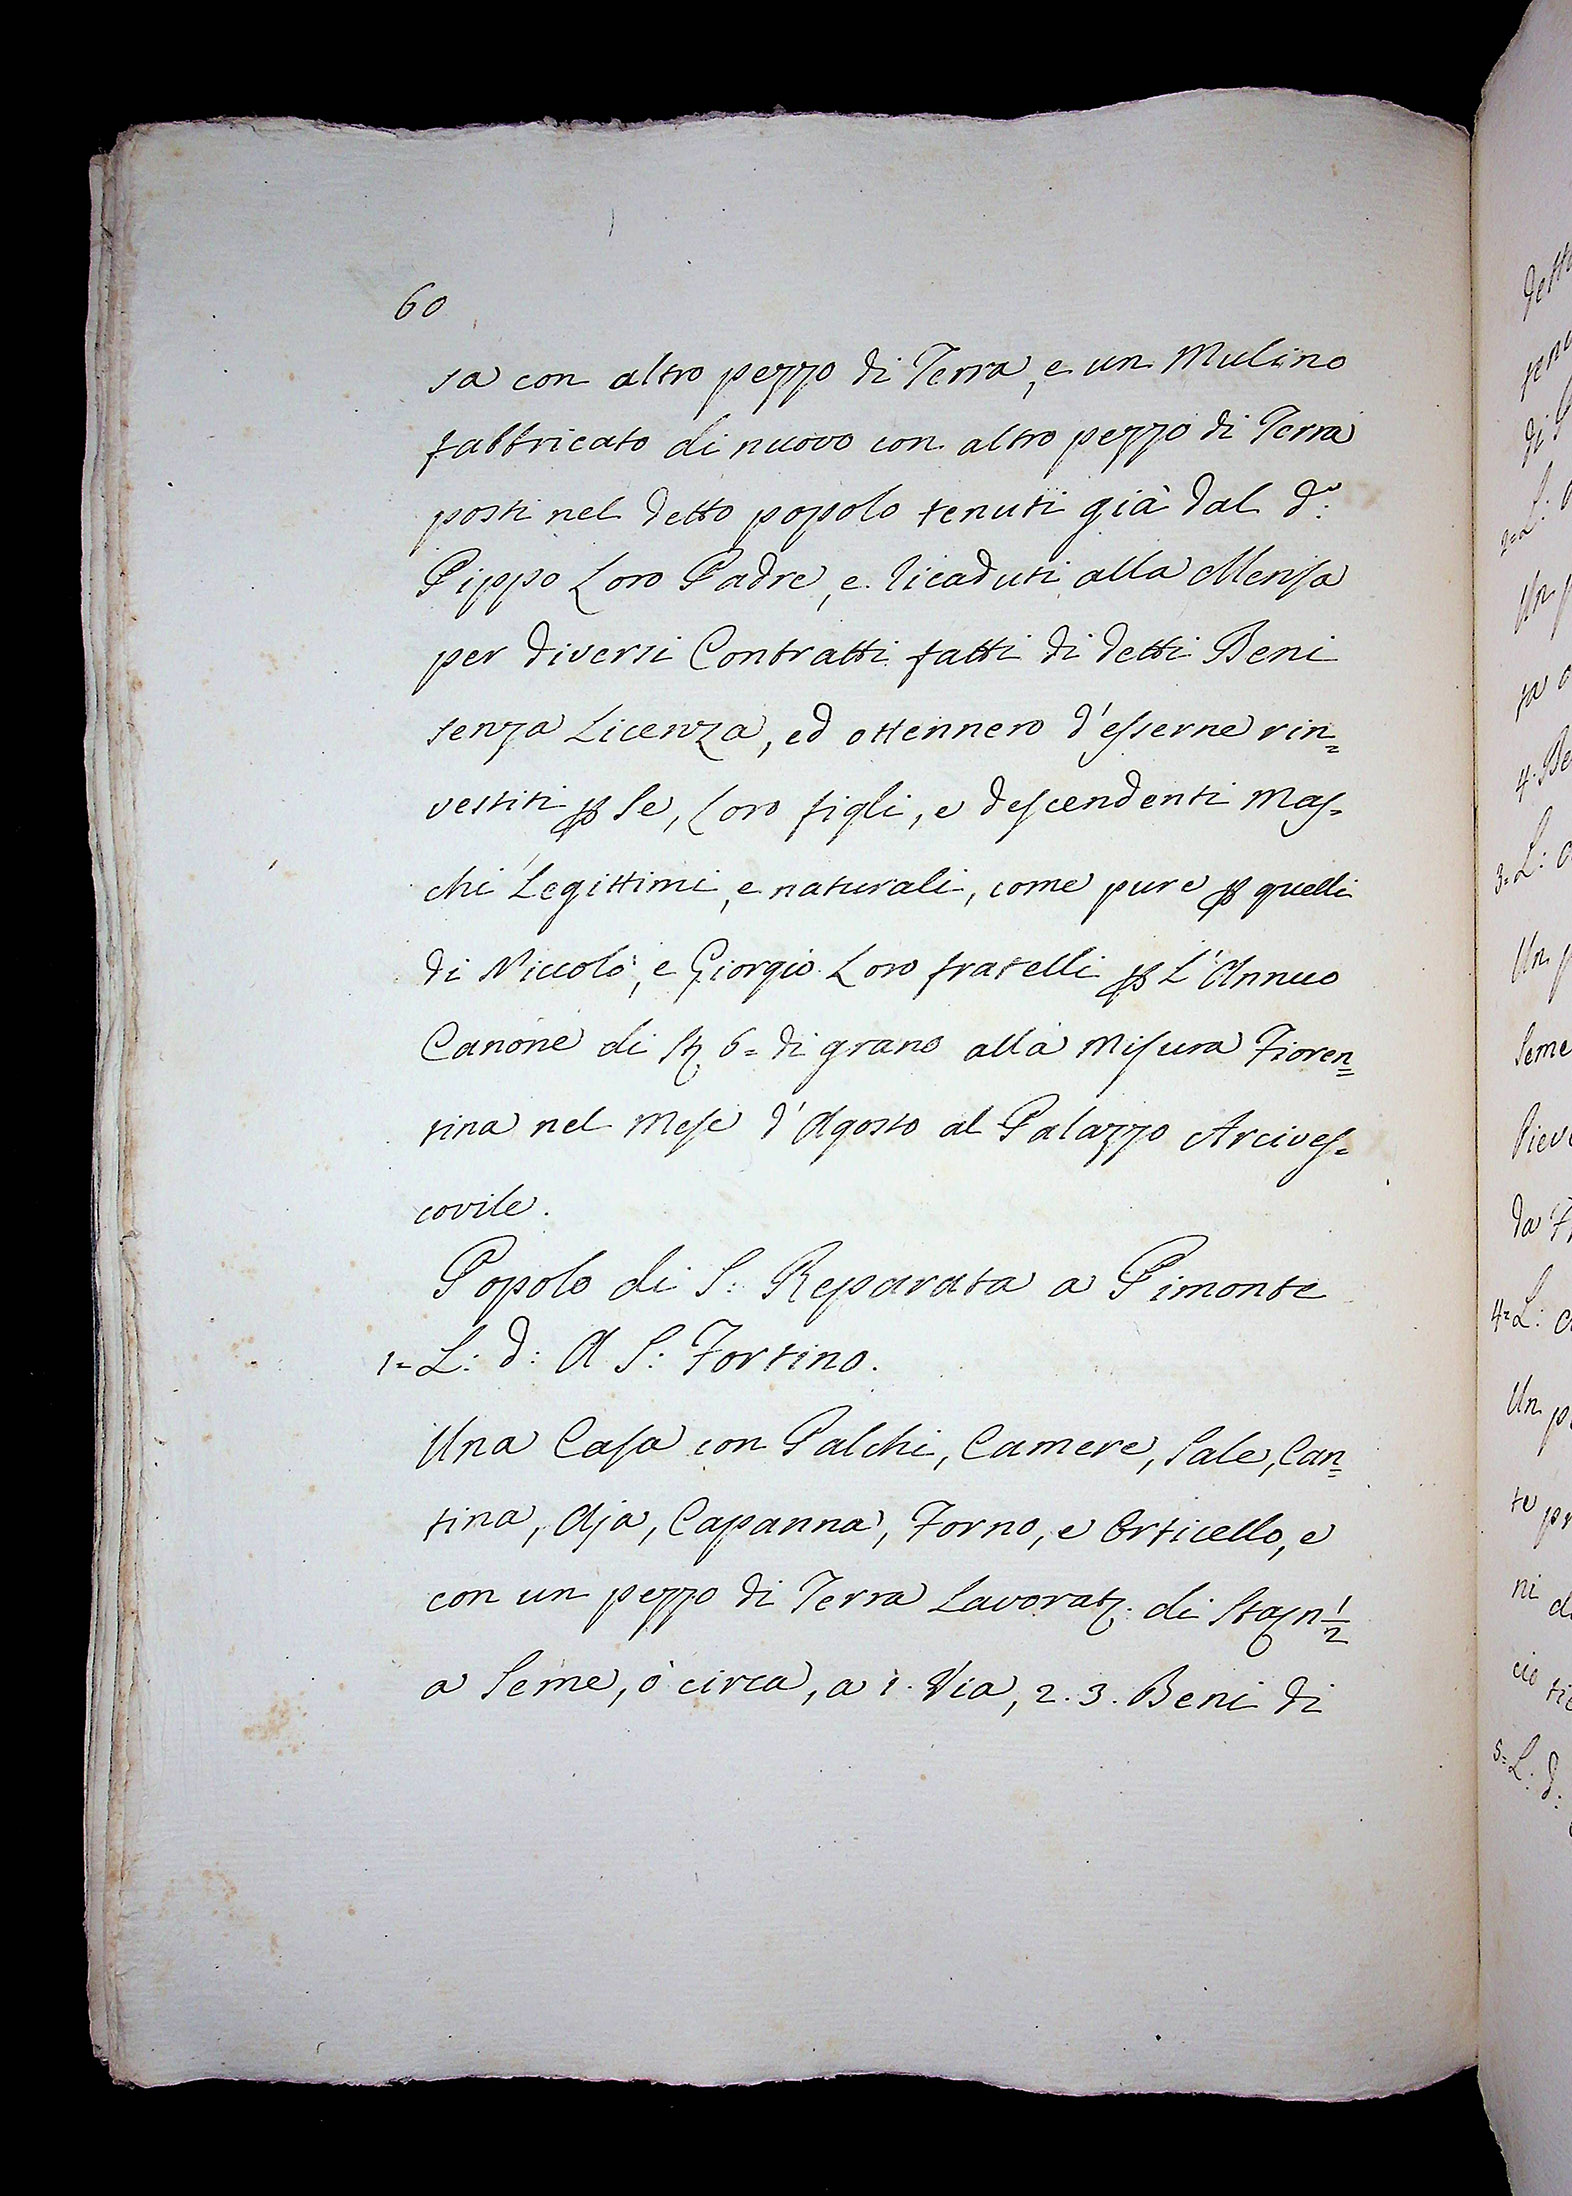 60
sa con altro pezzo di Terra, e un Mulino
fabbricato di nuovo con altro pezzo di Terra
posti nel detto popolo tenuti già dal d.o
Pippo Loro Padre, e ricaduti alla Mensa
per diversi Contratti fatti di detti Beni
senza Licenza, ed ottennero d'esserne rin=
vestiti p Se, Loro figli, e descendenti Mas=
chi Legittimi, e naturali, come pure p quelli
di Niccolò, e Giorgio Loro fratelli p L'Annuo
Canone di St 6= di grano alla Misura Fioren=
tina nel Mese d'Agosto al Palazzo Arcives=
covile.
Popolo di S: Reparata a Pimonte
1= L: d: A S: Fortino.
Una Casa con Palchi, Camere, Sale, Can=
tina, Aja, Capanna, Forno, e Orticello, e
con un pezzo di Terra Lavorat: di Stajn 1/2
a Seme, ò circa, a 1. Via, 2. 3. Beni di
2= L:
Un p
4. Be
3= L:
Un p
Seme
Pieve
4= L:
Un p
ni
cio
5= L: d: